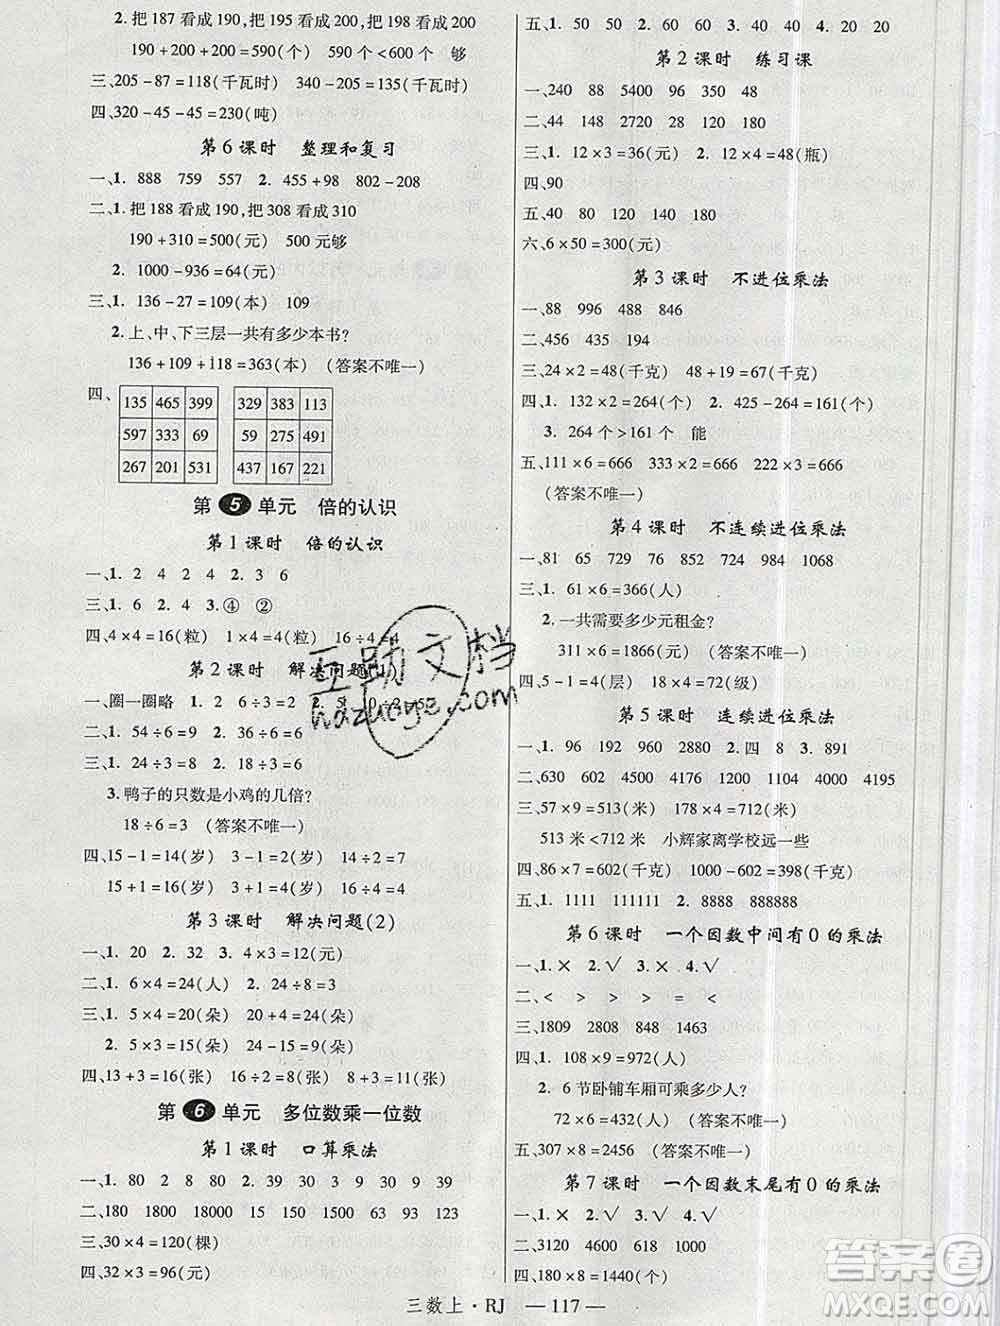 2. 把 187 看成 190,把 185 看成 200,把 198 看成 200
190+200+200=590(个) 590个<600个 够
三、205-87=118(千瓦时) 340-205=135(千瓦时)
四、320-45-45=230(吨)
第 6 课时 整理和复习
一、1. 888 759 557 2. 455+98 802-208
二、1. 把 188 看成 190,把 308 看成 310
190+310=500(元) 500元够
2. 1000-936=64(元)
三、1. 136-27=109(本) 109
2. 上、中、下三层一共有多少本书?
136+109+118=363(本) (答案不唯一)
四、
135 465 399
597 333 69
267 201 531
329 383 113
59 275 491
437 167 221
第 5 单元 倍的认识
第 1 课时 倍的认识
一、1. 2 4 2 4 2. 3 6
三、1. 6 2. 4 3. ④ ②
四、4×4=16(粒) 1×4=4(粒) 16÷4=4
第 2 课时 解决问题(1)
一、圈一圈略 1. 2 6÷3=2 2. 5
二、1. 54÷6=9 2. 36÷6=6
三、1. 24÷3=8 2. 24÷8=3
3. 鸭子的只数是小鸡的几倍?
18÷6=3 (答案不唯一)
四、15-1=14(岁) 3-1=2(岁) 14÷2=7
15+1=16(岁) 3+1=4(岁) 16÷4=4
第 3 课时 解决问题(2)
一、1. 20 2. 32 3. 4×3=12(元)
二、1. 6×4=24(人) 2. 24÷8=3
三、1. 5×4=20(朵) 20+4=24(朵)
2. 5×3=15(朵) 24-15=9(朵)
四、13+3=16(张) 16÷2=8(张) 3+8=11(张)
第 6 单元 多位数乘一位数
第 1 课时 口算乘法
一、1. 80 2 8 80 2. 9 30 9 30 9 39
二、180 1800 18000 15 150 1500 63 93 123
三、30×4=120(棵)
四、32×3=96(元)
五、1. 50 50 2. 90 90 3. 40 40 4. 20 20
第 2 课时 练习课
一、240 88 5400 96 350 48
二、44 148 2720 28 120 180
三、1. 12×3=36(元) 2. 12×4=48(瓶)
四、90
五、40 80 120 90 135 180
六、6×50=300(元)
第 3 课时 不进位乘法
一、88 996 488 846
二、456 435 194
三、24×2=48(千克) 48+19=67(千克)
四、1. 132×2=264(个) 2. 425-264=161(个)
3. 264个>161个 能
五、111×6=666 333×2=666 222×3=666
(答案不唯一)
第 4 课时 不连续进位乘法
一、81 65 729 76 852 724 984 1068
三、1. 61×6=366(人)
2. 一共需要多少元租金?
311×6=1866(元) (答案不唯一)
四、5-1=4(层) 18×4=72(级)
第 5 课时 连续进位乘法
一、1. 96 192 960 2880 2. 四 8 3. 891
二、630 602 4500 1000 4200 4000 4195
三、57×9=513(米) 178×4=712(米)
513米<712米 小辉家离学校远一些
四、86×7=602(千克) 1000-602=398(千克)
五、1. 1111 111111 2. 8888 888888
第 6 课时 一个因数中间有 0 的乘法
一、1. × 2. √ 3. × 4. √
二、< > > > = <
三、1809 2808 848 1463
四、1. 108×9=972(人)
2. 6 节卧铺车厢可乘多少人?
72×6=432(人) (答案不唯一)
五、307×8=2456 (答案不唯一)
第 7 课时 一个因数末尾有 0 的乘法
一、1. × 2. √ 3. × 4. √
二、3120 4600 628 1000
四、180×8=1440(个)
三数上·RJ —117—
互助文档
hazuoye.com
答案圈
MXQE.COM